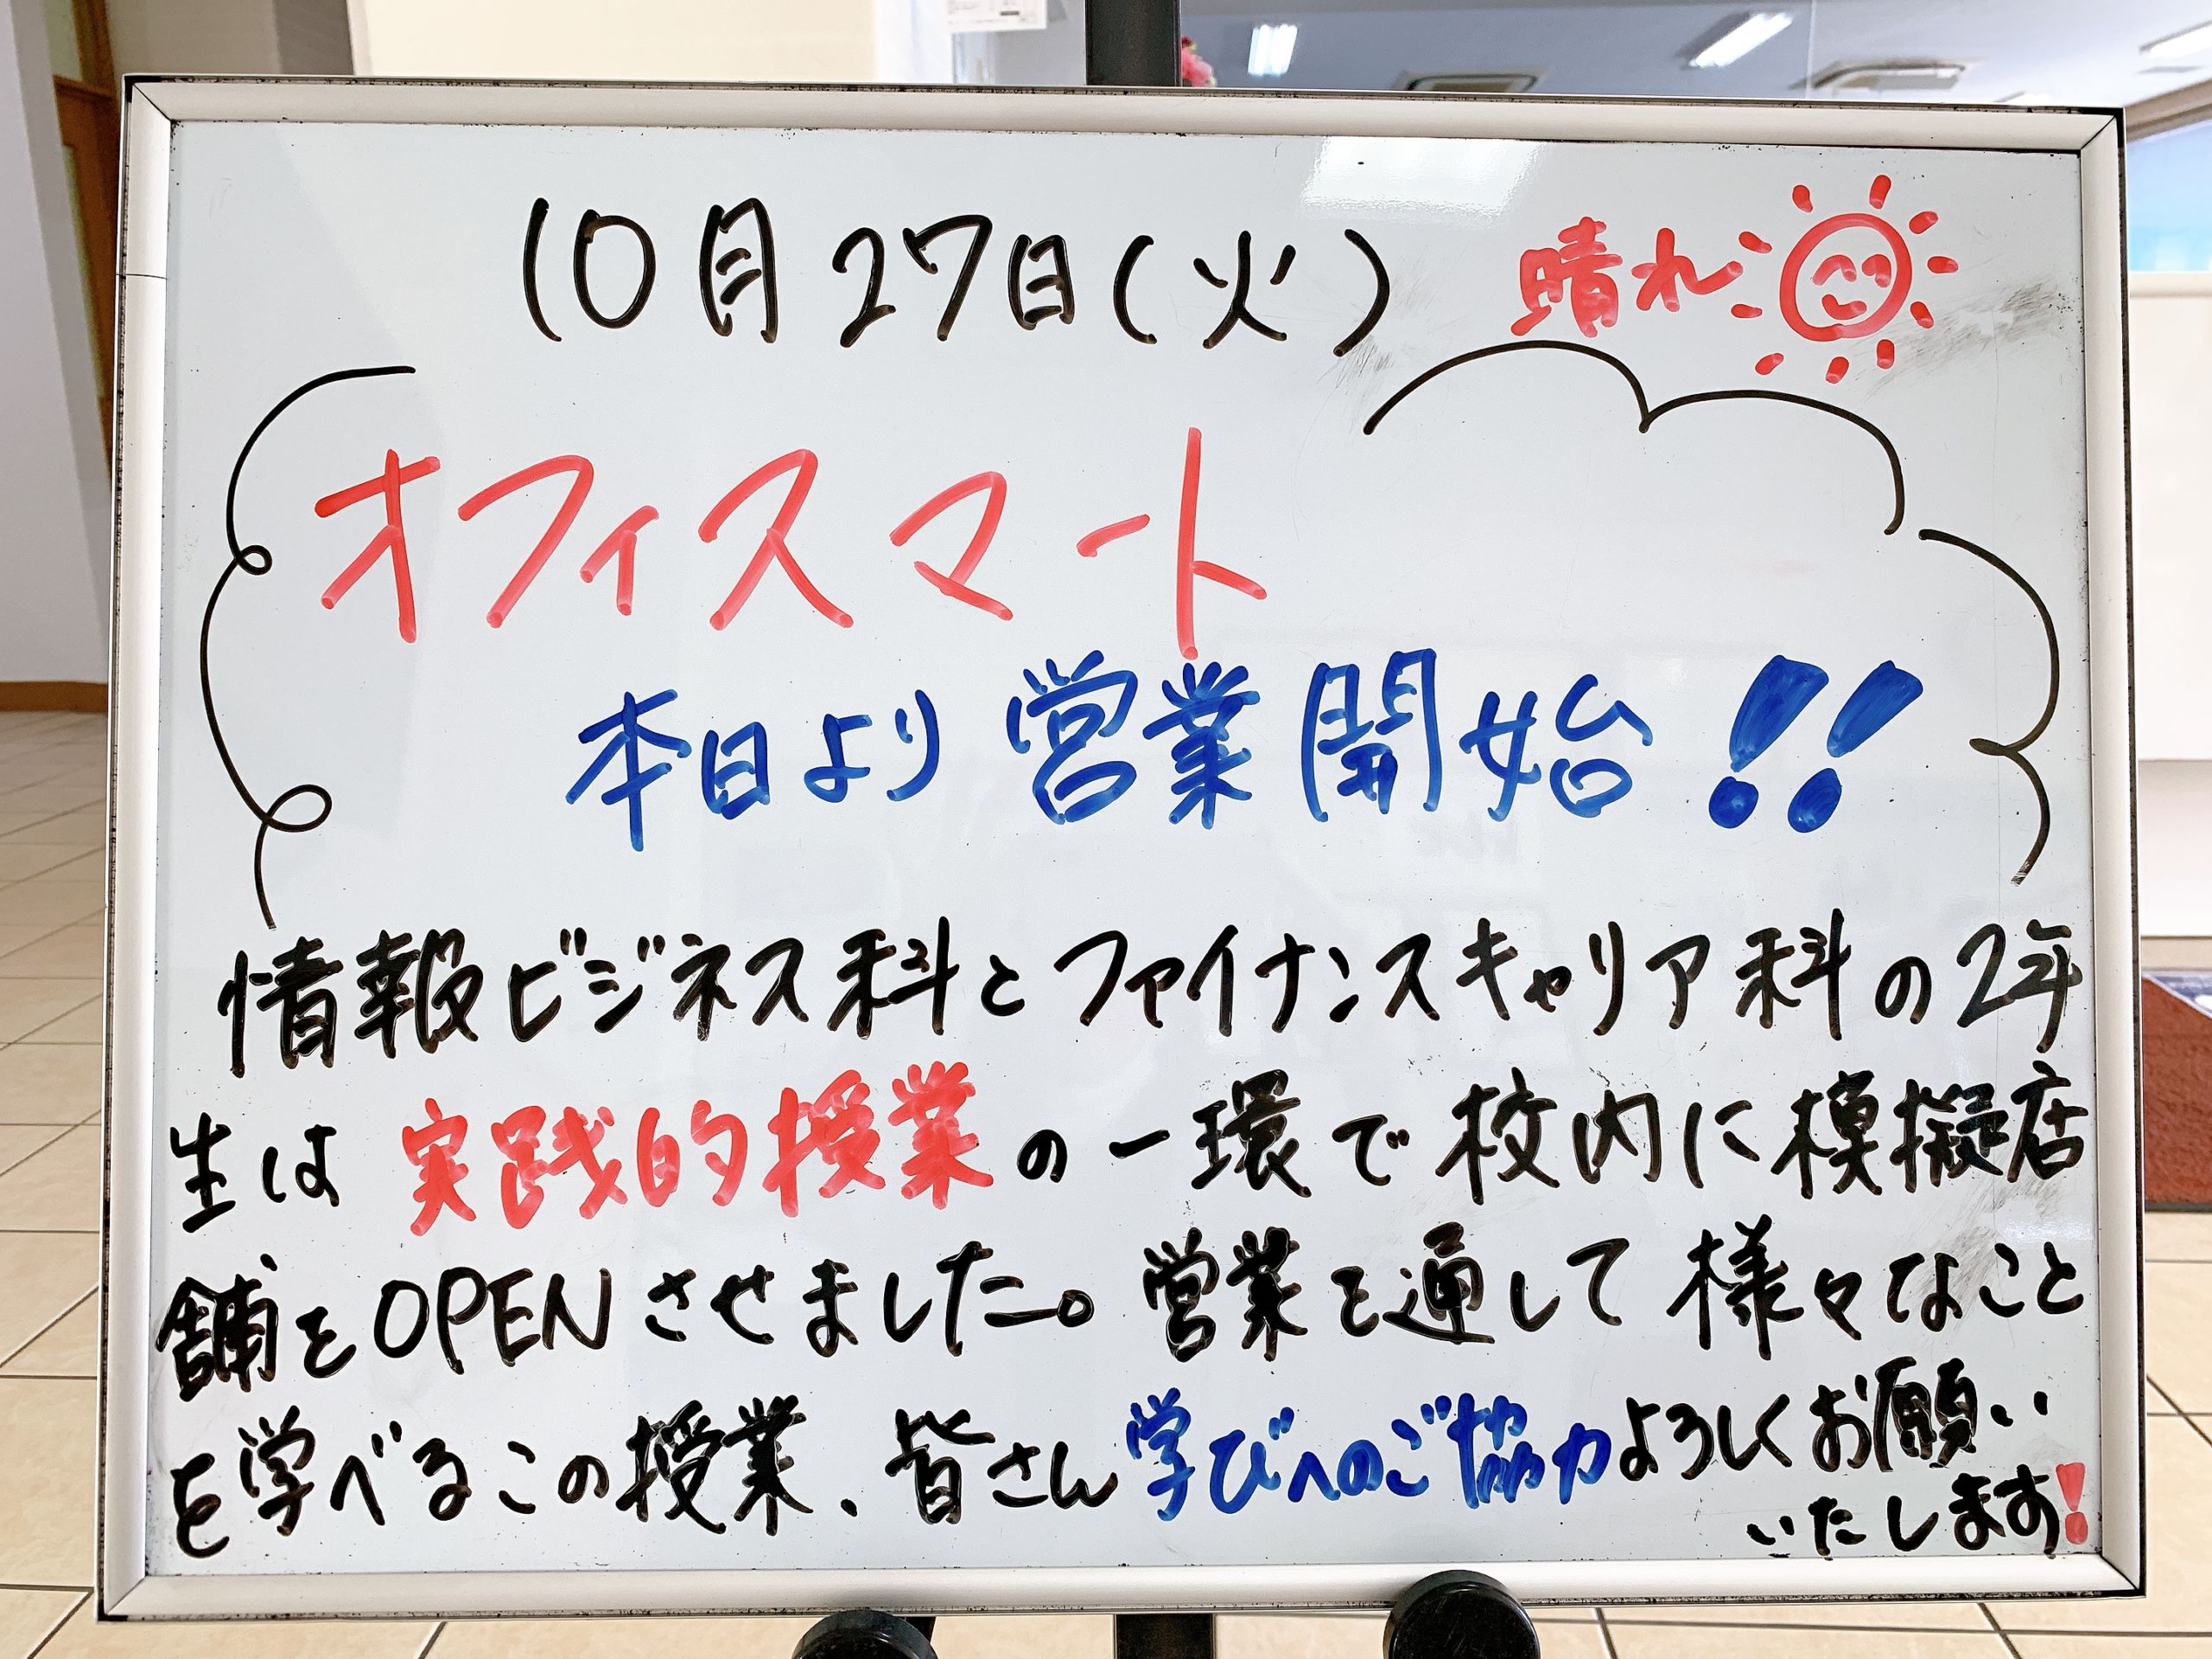 10月27日(火) 晴れ
オフィスマート
本日より営業開始!!
情報ビジネス科とファイナンスキャリア科の2年
生は実践的授業の一環で校内に模擬店
舗をOPENさせました。営業を通して様々なこと
を学べるこの授業、皆さん学びへのご協力よろしくお願い
いたします!